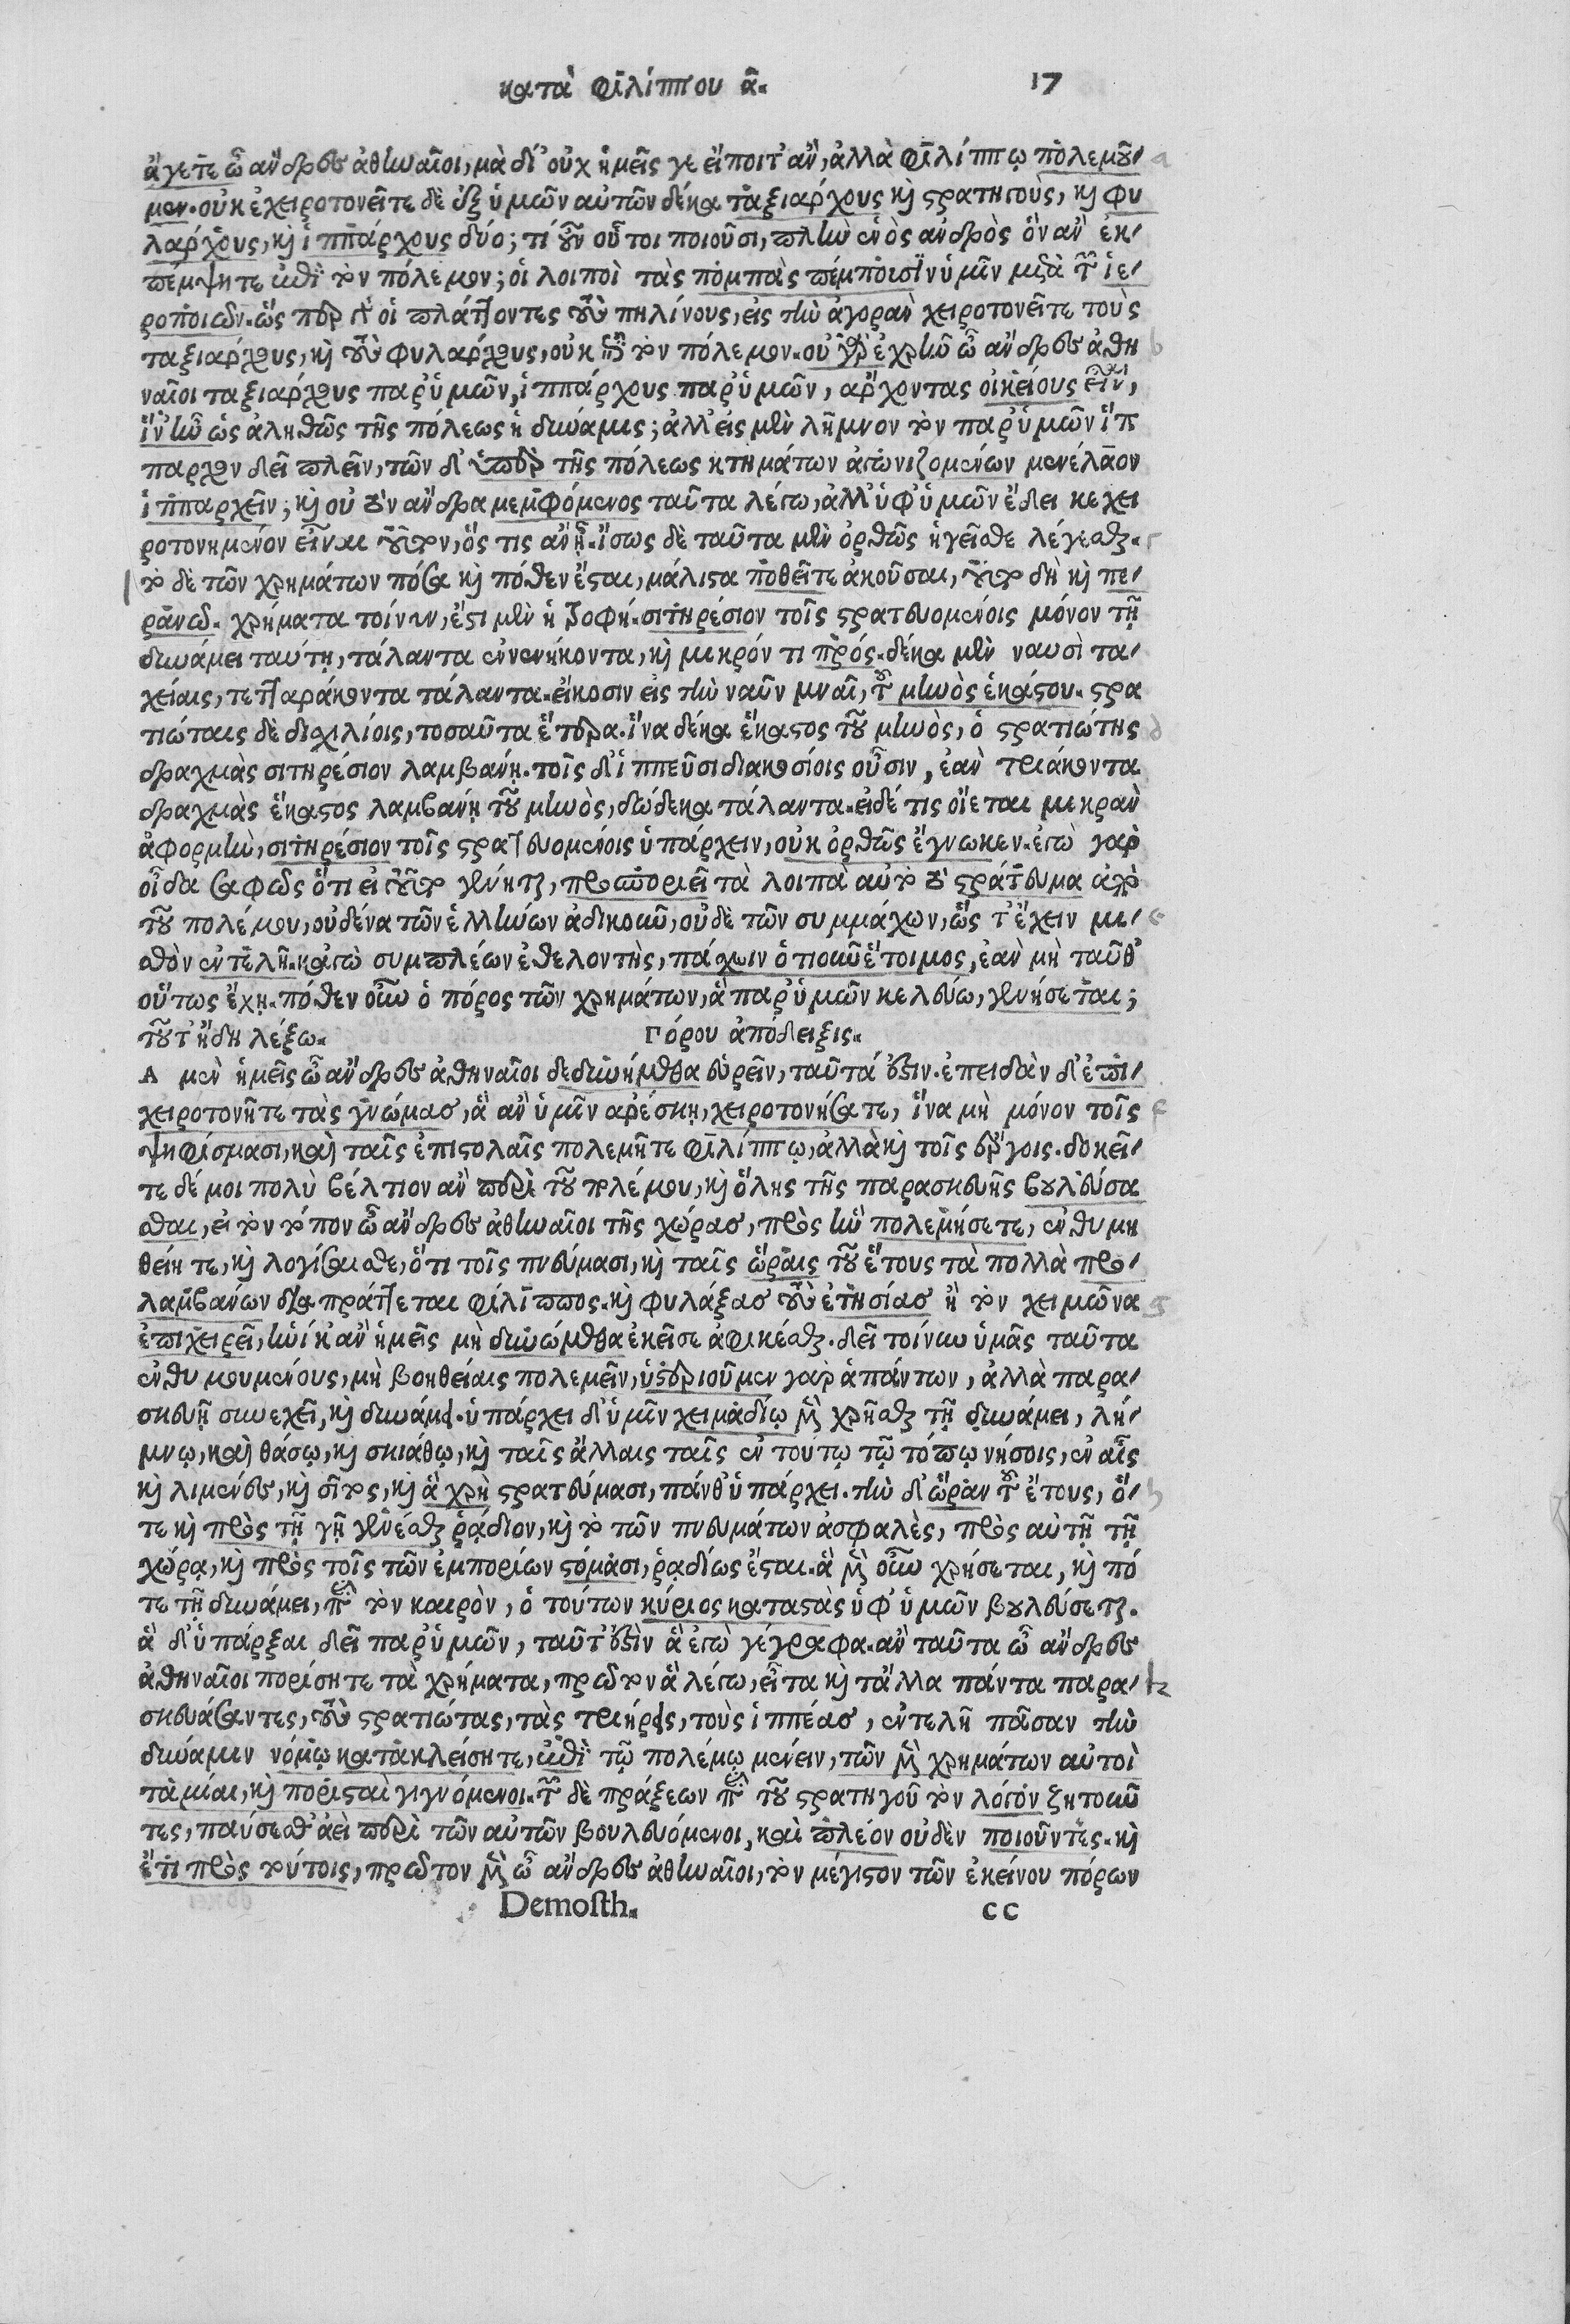 κατὰ Φιλίππου α. 17
ἄγετε ὦ ἄνδρες ἀθηναῖοι, μὰ δί' οὐχ ἡμεῖς γε εἴποιτ' ἂν, ἀλλὰ Φιλίππῳ πολεμοῦ-
μεν. οὐκ ἐχειροτονεῖτε δὲ ἐξ ὑμῶν αὐτῶν δέκα ταξιάρχους καὶ στρατηγοὺς, καὶ φυ
λάρχους, καὶ ἱππάρχους δύο; τί οὖν οὗτοι ποιοῦσι, πλὴν ἑνὸς ἀνδρὸς ὃν ἂν ἐκ-
πέμψητε ἐπὶ τὸν πόλεμον; οἱ λοιποὶ τὰς πομπὰς πέμπουσιν ὑμῖν μετὰ τῶν ἱε-
ροποιῶν. ὥσπερ γὰρ οἱ πλάττοντες τοὺς πηλίνους, εἰς τὴν ἀγορὰν χειροτονεῖτε τοὺς
ταξιάρχους, καὶ τοὺς φυλάρχους, οὐκ ἐπὶ τὸν πόλεμον. οὐ γὰρ ἐχρῆν ὦ ἄνδρες ἀθη
ναῖοι ταξιάρχους παρ' ὑμῶν, ἱππάρχους παρ' ὑμῶν, ἄρχοντας οἰκείους εἶναι,
ἵν' ἦν ὡς ἀληθῶς τῆς πόλεως ἡ δύναμις; ἀλλ' εἰς μὲν λῆμνον τὸν παρ' ὑμῶν ἵπ
παρχον δεῖ πλεῖν, τῶν δ' ὑπὲρ τῆς πόλεως κτημάτων ἀγωνιζομένων μενέλαον
ἱππαρχεῖν; καὶ οὐ τὸν ἄνδρα μεμφόμενος ταῦτα λέγω, ἀλλ' ὑφ' ὑμῶν ἔδει κεχει
ροτονημένον εἶναι τοῦτον, ὅς τις ἂν ᾖ. ἴσως δὲ ταῦτα μὲν ὀρθῶς ἡγεῖσθε λέγεσθαι.
τὸ δὲ τῶν χρημάτων πόσα καὶ πόθεν ἔσται, μάλιστα ποθεῖτε ἀκοῦσαι, τοῦτο δὴ καὶ πε-
ράνω. χρήματα τοίνυν, ἔστι μὲν ἡ τροφή. σιτηρέσιον τοῖς στρατευομένοις μόνον τῇ
δυνάμει ταύτῃ, τάλαντα ἐνενήκοντα, καὶ μικρόν τι πρός. δέκα μὲν ναυσὶ τα-
χείαις, τετταράκοντα τάλαντα. εἴκοσιν εἰς τὴν ναῦν μναῖ, τοῦ μηνὸς ἑκάστου. στρα
τιώταις δὲ δισχιλίοις, τοσαῦτα ἕτερα. ἵνα δέκα ἕκαστος τοῦ μηνὸς, ὁ στρατιώτης
δραχμὰς σιτηρέσιον λαμβάνῃ. τοῖς δ' ἱππεῦσι διακοσίοις οὖσιν, ἐὰν τριάκοντα
δραχμὰς ἕκαστος λαμβάνῃ τοῦ μηνὸς, δώδεκα τάλαντα. εἰ δέ τις οἴεται μικρὰν
ἀφορμὴν, σιτηρέσιον τοῖς στρατευομένοις ὑπάρχειν, οὐκ ὀρθῶς ἔγνωκεν. ἐγὼ γὰρ
οἶδα σαφῶς ὅτι εἰ τοῦτο γένηται, προσποριεῖ τὰ λοιπὰ αὐτὸ τὸ στράτευμα ἀπὸ
τοῦ πολέμου, οὐδένα τῶν ἑλλήνων ἀδικοῦν, οὐδὲ τῶν συμμάχων, ὥστ' ἔχειν μι-
σθὸν ἐντελῆ. κἀγὼ συμπλέων ἐθελοντὴς, πάσχειν ὁτιοῦν ἕτοιμος, ἐὰν μὴ ταῦθ'
οὕτως ἔχῃ. πόθεν οὖν ὁ πόρος τῶν χρημάτων, ἃ παρ' ὑμῶν κελεύω, γενήσεται;
τοῦτ' ἤδη λέξω. Πόρου ἀπόδειξις.
Α μὲν ἡμεῖς ὦ ἄνδρες ἀθηναῖοι δεδυνήμεθα εὑρεῖν, ταῦτά ἐστιν. ἐπειδὰν δ' ἐπι-
χειροτονῆτε τὰς γνώμας, ἃ ἂν ὑμῖν ἀρέσκῃ, χειροτονήσατε, ἵνα μὴ μόνον τοῖς
ψηφίσμασι, καὶ ταῖς ἐπιστολαῖς πολεμῆτε Φιλίππῳ, ἀλλὰ καὶ τοῖς ἔργοις. δοκεῖ-
τε δέ μοι πολὺ βέλτιον ἂν περὶ τοῦ πολέμου, καὶ ὅλης τῆς παρασκευῆς βουλεύσα
σθαι, εἰ τὸν τόπον ὦ ἄνδρες ἀθηναῖοι τῆς χώρας, πρὸς ἣν πολεμήσετε, ἐνθυμη
θείητε, καὶ λογίσαισθε, ὅτι τοῖς πνεύμασι, καὶ ταῖς ὥραις τοῦ ἔτους τὰ πολλὰ προ-
λαμβάνων διαπράττεται Φίλιππος. καὶ φυλάξας τοὺς ἐτησίας ἢ τὸν χειμῶνα
ἐπιχειρεῖ, ἡνίκ' ἂν ἡμεῖς μὴ δυνώμεθα ἐκεῖσε ἀφικέσθαι. δεῖ τοίνυν ὑμᾶς ταῦτα
ἐνθυμουμένους, μὴ βοηθείαις πολεμεῖν, ὑστεριοῦμεν γὰρ ἁπάντων, ἀλλὰ παρα-
σκευῇ συνεχεῖ, καὶ δυνάμει. ὑπάρχει δ' ὑμῖν χειμαδίῳ μὲν χρῆσθαι τῇ δυνάμει, λή-
μνῳ, καὶ θάσῳ, καὶ σκιάθῳ, καὶ ταῖς ἄλλαις ταῖς ἐν τούτῳ τῷ τόπῳ νήσοις, ἐν αἷς
καὶ λιμένες, καὶ σῖτος, καὶ ἃ χρὴ στρατεύμασι, πάνθ' ὑπάρχει. τὴν δ' ὥραν τοῦ ἔτους, ὅ-
τε καὶ πρὸς τῇ γῇ γενέσθαι ῥᾴδιον, καὶ τὸ τῶν πνευμάτων ἀσφαλὲς, πρὸς αὐτῇ τῇ
χώρᾳ, καὶ πρὸς τοῖς τῶν ἐμπορίων στόμασι, ῥᾳδίως ἔσται. ἃ μὲν οὖν χρήσεται, καὶ πό
τε τῇ δυνάμει, παρὰ τὸν καιρὸν, ὁ τούτων κύριος καταστὰς ὑφ' ὑμῶν βουλεύσεται.
ἃ δ' ὑπάρξαι δεῖ παρ' ὑμῶν, ταῦτ' ἐστὶν ἃ ἐγὼ γέγραφα. ἂν ταῦτα ὦ ἄνδρες
ἀθηναῖοι πορίσητε τὰ χρήματα, πρῶτον ἃ λέγω, εἶτα καὶ τἄλλα πάντα παρα-
σκευάσαντες, τοὺς στρατιώτας, τὰς τριήρεις, τοὺς ἱππέας, ἐντελῆ πᾶσαν τὴν
δύναμιν νόμῳ κατακλείσητε, ἐπὶ τῷ πολέμῳ μένειν, τῶν μὲν χρημάτων αὐτοὶ
ταμίαι, καὶ πορισταὶ γιγνόμενοι. τῶν δὲ πράξεων παρὰ τοῦ στρατηγοῦ τὸν λόγον ζητοῦν
τες, παύσεσθ' ἀεὶ περὶ τῶν αὐτῶν βουλευόμενοι, καὶ πλέον οὐδὲν ποιοῦντες. καὶ
ἔτι πρὸς τούτοις, πρῶτον μὲν ὦ ἄνδρες ἀθηναῖοι, τὸν μέγιστον τῶν ἐκείνου πόρων
Demosth. cc